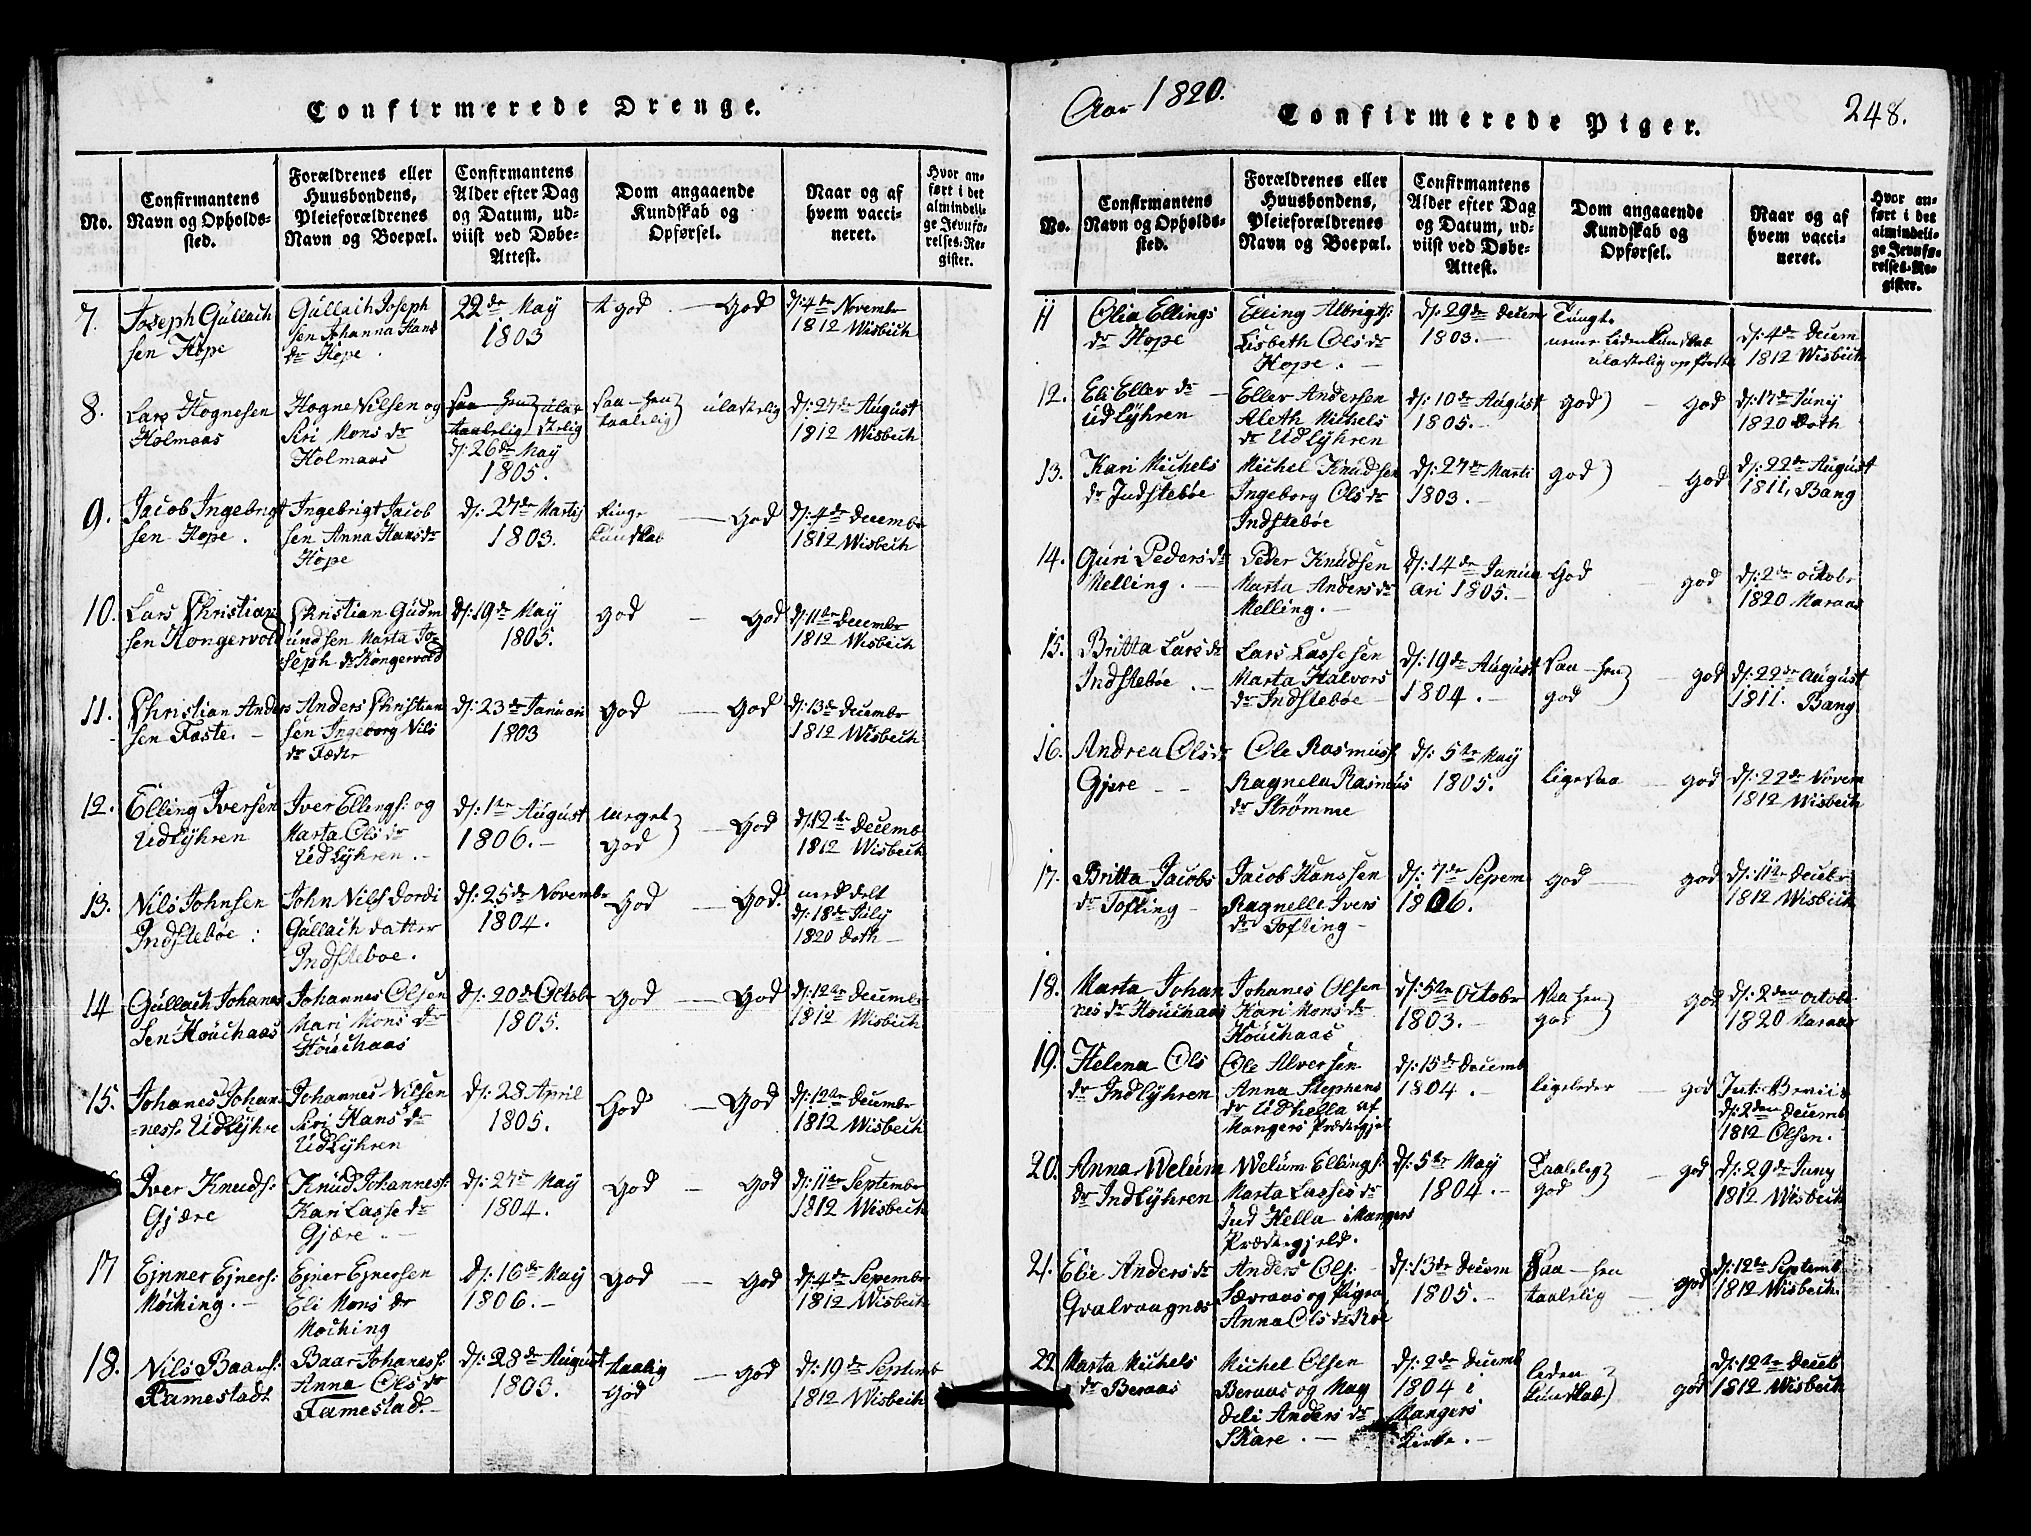 Confirmerede Drenge.
No.
Confirmantens
Navn og Opholds-
sted.
Forældrenes eller
Huusbondens,
Pleieforældrenes
Navn og Boepæl.
Confirmantens
Alder efter Dag
og Datum, ud-
viist ved Døbe-
Attest.
Dom angaaende
Kundskab og
Opførsel.
Naar og af
hvem vacci-
neret.
Hvor an-
ført i det
almindeli-
ge Jevnfø-
relses-Re-
gister.
7.
Joseph Gullach
sen Hope
Gullach Joseph
sen Johanna Hans
dr Hope.
22de May
1803
god — God
d: 4de Novembr
1812 Wisbech
8.
Lars Hognesen
Holmaas
Hogne Nilsen og
Siri Mons dr
Holmaas
d: 26de May
1805.
saa-hen
taalelig
ulastelig
d: 27de August
1812 Wisbech
9.
Jacob Ingebrigt
sen Hope.
Ingebrigt Jacob
sen Anna Hansdr
Hope
d: 27de Martij
1803.
Ringe
kundskab
— God
d: 4de Decembr
1812 Wisbech
10.
Lars Christian
sen Kongervold
Christian Gudm
undsen Marta Jo-
seph dr Kongervold
d: 19de May
1805.
god - God
d: 11te Decembr
1812 Wisbech
11.
Christian Anders
sen Foste. -
Anders Christian
sen Ingeborg Nils
dr
d: 23de Januari
1803
God — God
d: 13de Decembr
1812 Wisbech
12.
Elling Iversen
Udlyhren
Iver Ellings: og
Marta Ols dr
Udlyhren. -
d: 1te August
1806. -
meget
God
— God
d: 12te Decemb
1812 Wisbech
13.
Nils Johnsen
Indstebøe :
John Nils Dordi
Gullach datter
Indsteboe.
d: 25de Novembr
1804.
God — God.
meddelt
d: 18de July
1820 Doth —
14
Gullach Johanes
sen Houchaas
Johannes Olsen
Mari Mons dr
Houchaas
d: 20de Octobr
1805.
God — God
d: 12te Decembr
1812 Wisbech
15.
Johanes Johan
=ness. Udlyhre
Johannes Nilsen
Siri Hans dr
Udlyhren
d: 28 April
1805.
God — God
d: 12te Decembr
1812 Wisbech
Iver Knuds:
Gjære
Knud Johanness:
Kari Lasse dr
Gjære. -
d: 27de May
1804.
God - God
d: 11te Septembr
1812 Wisbech
17
Ejnner Ejners:
Mocking. -
Ejner Ejnersen
Eli Mons dr
Mocking
d: 16de May
1806. -
God — God
d: 4de Sepembr
1812 Wisbech
18.
Nils Baars:
Ramestadt
Baar Johaness:
Anna Ols dr
Famestad. -
d: 28de August
1803.
taalig
God
— God
d: 19de Septemb
1812 Wisbech
Aar 1820.
Confirmerede Piger.
248.
No.
Confirmantens
Navn og Opholds-
sted.
Forældrenes eller
Huusbondens,
Pleieforældrenes
Navn og Boepæl.
Confirmantens
Alder efter Dag
og Datum, ud-
viist ved Døbe-
Attest.
Dom angaaende
Kundskab og
Opførsel.
Naar og af
hvem vacci-
neret.
Hvor an-
ført i det
almindeli-
ge Jevnfø-
relses-Re-
gister.
11
Olia Ellings
dr Hope
Elling Albrigts:
Lisbeth Ols dr
Hope. -
d: 29de Decem
1803. -
Tungt
nemme liden kundskab
ulastelig
d: 4de Decem
1812 Wisbech
12.
Eli Eller dr
Udlyhren
Eller Andersen
Aleth Michels
dr Udlyhren
d: 10de August
1805. -
God - God
d: 17de Juny
1820 Doth
13.
Kari Michels
dr Indstebøe
Michel Knudsen
Ingeborg Ols dr
Indstebøe
d: 27de Marti
1803. -
god - God
d: 22de August
1811, Bang
14.
Guri Peders dr
Melling. -
Peder Knudsen
Marta Anders dr
Melling. -
d: 14de Janua
ari 1805. -
God - god
d: 2de octobr
1820 Maraas
15.
Britta Lars dr
Indstebøe. -
Lars Lassesen
Marta Halvors
dr Indstebøe
d: 19de August
1804. -
Saa-hen
god
- god
d: 22de August
1811. Bang
16.
Andrea Ols dr
Gjere - -
Ole Rasmuss.
Ragnela Rasmus
dr Strømme
d: 5te May
1805.
ligesaa - god
d: 22de Novem
1812 Wisbech
17.
Britta Jacobs
dr Tofting -
Jacob Hanssen
Ragnelle Ivers
dr Tofting -
d: 7de Sepem
1806.
God — god
d: 11te Decebr
1812 Wisbech
18.
Marta Johan
nes dr Houchaas
Johanes Olsen
Kari Mons dr
Houchaas
d: 5te Octobr
1803. -
Saa hen
god
god
d: 2den octobr
1820 Maraas
19.
Helena Ols
dr Indlyhren
Ole Alversen
Anna Stephens
dr Udhella af
Mangers Prædegjel
d: 15de Decemb
1804. -
ligeleder - god
d: 2den Decemb
1812 Olsen.
20.
Anna Welum
dr Indlyhren
Welum Ellings:
Marta Lasses dr
Ind Hella i Mangers
Prædegjeld.
d: 5te May
1804. -
Taaleleg
God
- god
d: 29de Juny
1812 Wisbech
21.
Elie Anders dr
Qvalvaagnes
Anders Ols:
Sævraas og Pigen
Anna Ols dr Roe
d: 13de Decem
1805. -
Saa-hen
taalelig
- god
d: 12te Septemb
1812 Wisbech.
22
Marta Michels
dr Beraas
Michel Olsen
Beraas og Mag
deli Anders dr
Skare. -
d: 2de Decemb
1804 i
Mangers
Kirke. -
leden
kundskab
god
d: 12te Deceb
1812 Wisbech